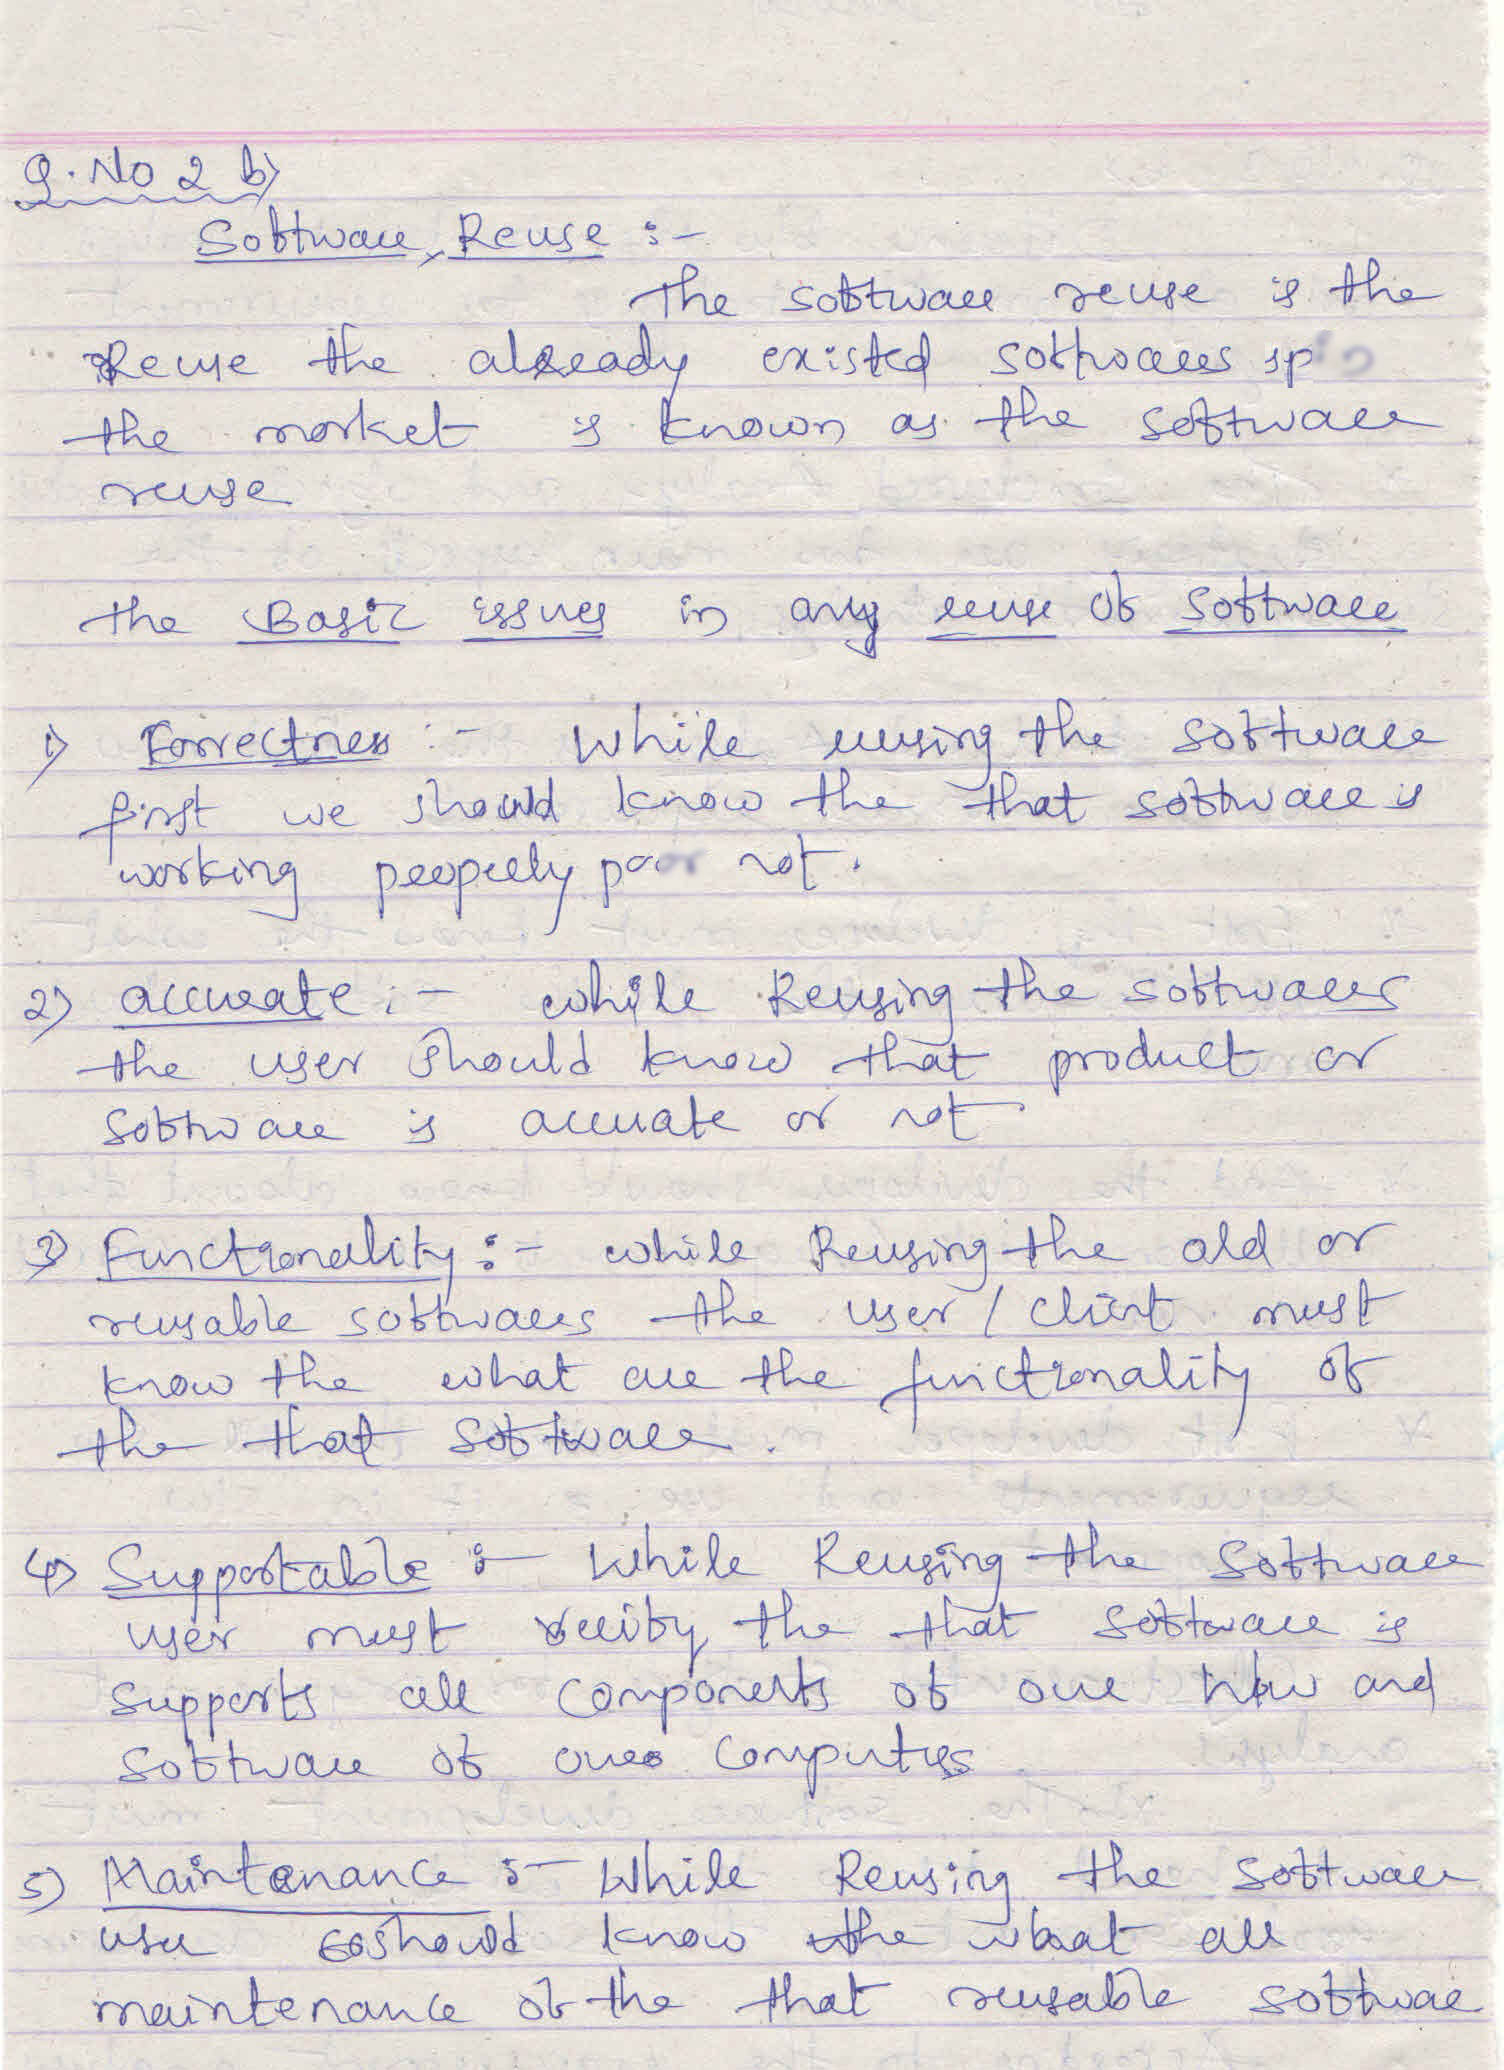 Q. No 2 b)
Software Reuse :-
The software reuse is the
Reuse the already existed softwares
the market is known as the software
reuse
the Basic issues in any reuse of software
1) Correctness :- While reusing the software
first we should know the that software is
working properly or not.
2) accurate :- while Reusing the softwares
the user should know that product or
software is accurate or not
3) Functionality :- while Reusing the old or
reusable softwares the user / client must
know the what are the functionality of
the that software.
4) Supportable :- While Reusing the software
user must verify the that software is
supports all components of our h/w and
software of our computers
5) Maintenance :- While Reusing the software
user should know the what all
maintenance of the that reusable software